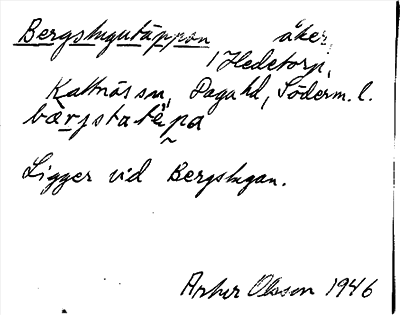 Bergstugutäppan åker,
/ Hedetorp,
Kattnäs sn, Daga hd, Söderm. l.
bærjstatèpa
Ligger vid Bergstugan.
Arthur Olsson 1946